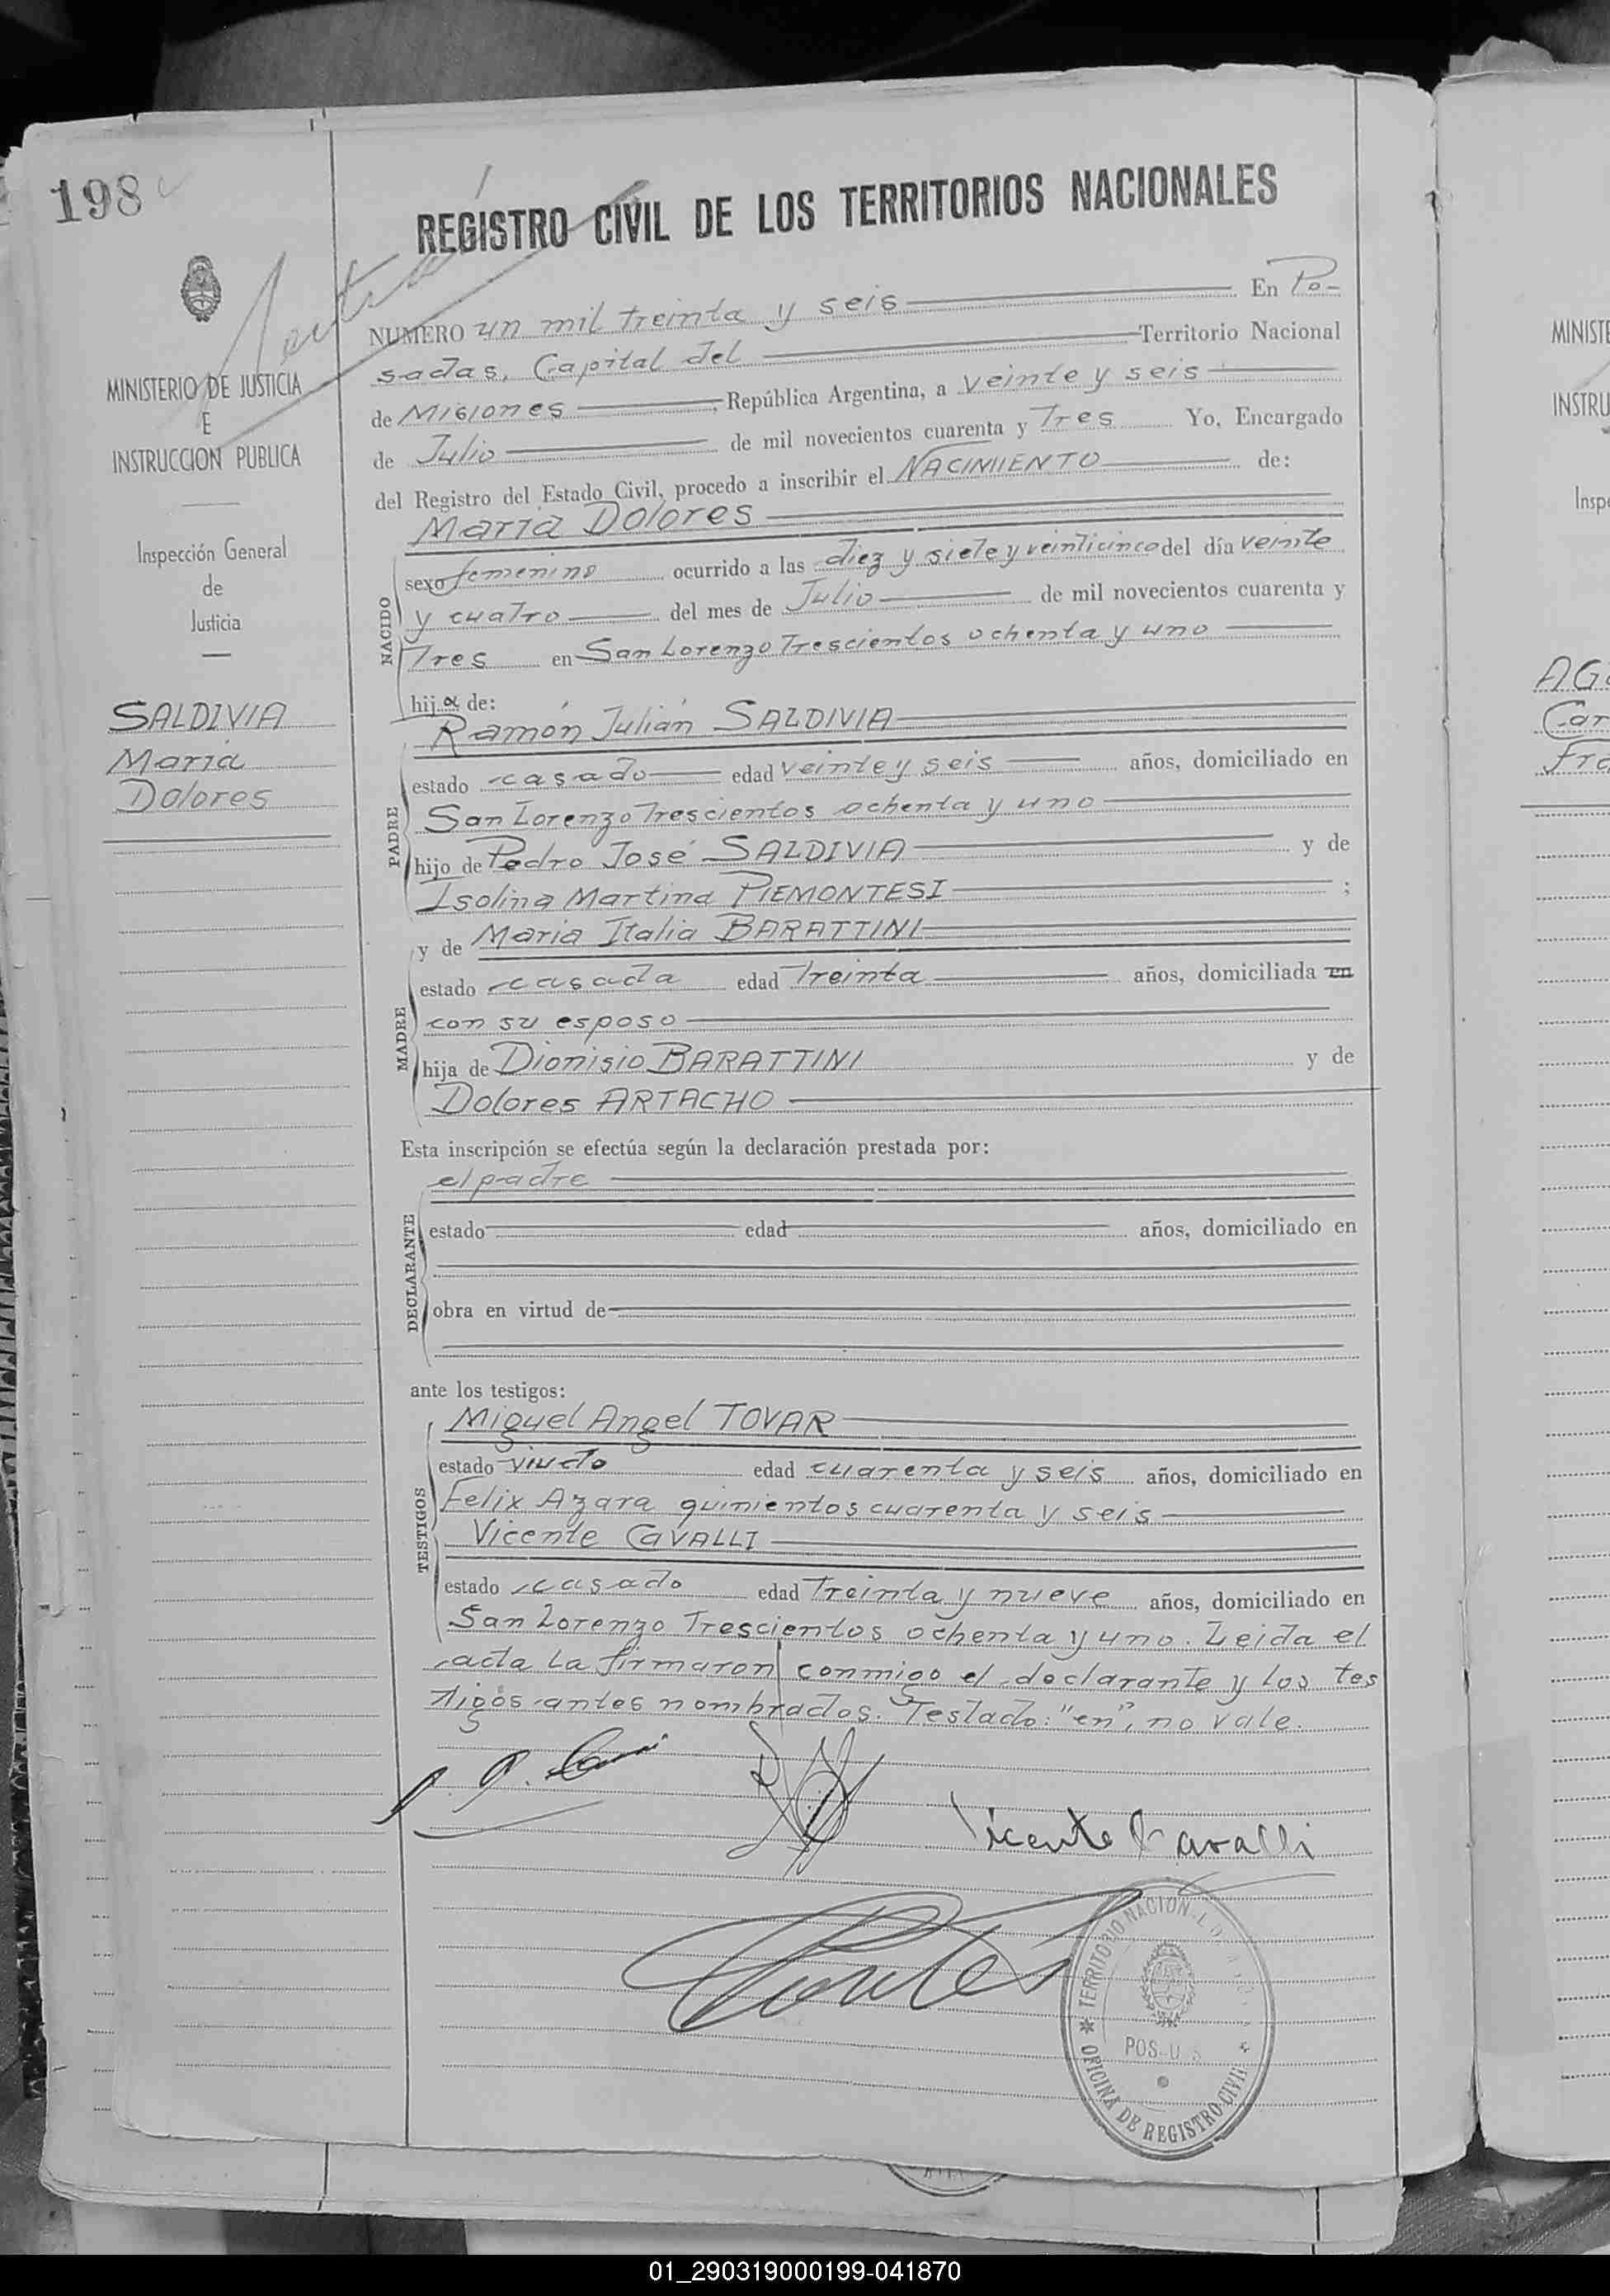 198
REGISTRO CIVIL DE LOS TERRITORIOS NACIONALES
MINISTERIO DE JUSTICIA
E
INSTRUCCION PUBLICA
Inspección General
de
Justicia
SALDIVIA
Maria
Dolores
NUMERO un mil treinta y seis En Po-
sadas, Capital del Territorio Nacional
de Misiones, República Argentina, a veinte y seis
de Julio de mil novecientos cuarenta y Tres Yo, Encargado
del Registro del Estado Civil, procedo a inscribir el NACIMIENTO de:
María Dolores
NACIDO
sexo femenino ocurrido a las diez y siete y veinticinco del día veinte
y cuatro del mes de Julio de mil novecientos cuarenta y
Tres en San Lorenzo Trescientos ochenta y uno
hija de:
Ramón Julián SALDIVIA
PADRE
estado casado edad veinte y seis años, domiciliado en
San Lorenzo Trescientos ochenta y uno
hijo de Pedro José SALDIVIA y de
Isolina Martina PIEMONTESI ;
y de Maria Italia BARATTINI
MADRE
estado casada edad Treinta años, domiciliada en
con su esposo
hija de Dionisio BARATTINI y de
Dolores ARTACHO
Esta inscripción se efectúa según la declaración prestada por:
el padre
DECLARANTE
estado edad años, domiciliado en
obra en virtud de
ante los testigos:
Miguel Angel TOVAR
TESTIGOS
estado viudo edad cuarenta y seis años, domiciliado en
Felix Azara quinientos cuarenta y seis
Vicente CAVALLI
estado casado edad Treinta y nueve años, domiciliado en
San Lorenzo Trescientos ochenta y uno. Leida el
acta la firmaron conmigo el declarante y los tes
tigos antes nombrados. Testado: "en", no vale.
Vicente Cavalli
TERRITORIO NACION
POS U S
OFICINA DE REGISTRO CIVIL
MINISTE
INSTRU
Inspe
01_290319000199-041870